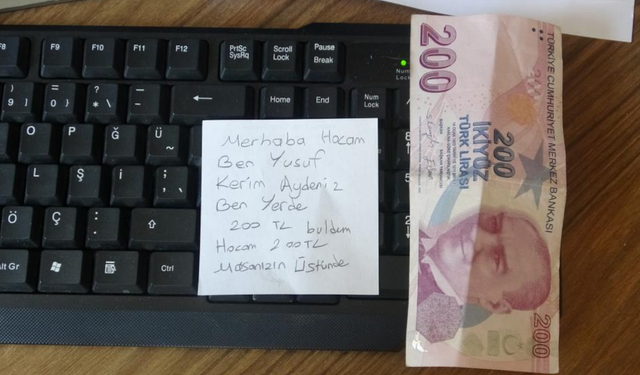 F8 F9 F10 F11 F12 PrtSc SysRq Scroll Lock Pause Break
Num Lock
9 ) ] = 0 } ? * \ _ - Home End Num Lock
O P Ğ Ü
L Ş İ ; ,
Ö Ç : .
Alt Gr Ctrl
Merhaba Hocam
Ben Yusuf
Kerim Aydeniz
Ben Yerde
200 TL buldum
Hocam 200TL
Masanızın Üstünde
200
TÜRKİYE CUMHURİYET MERKEZ BANKASI
200
İKİYÜZ
TÜRK LİRASI
200